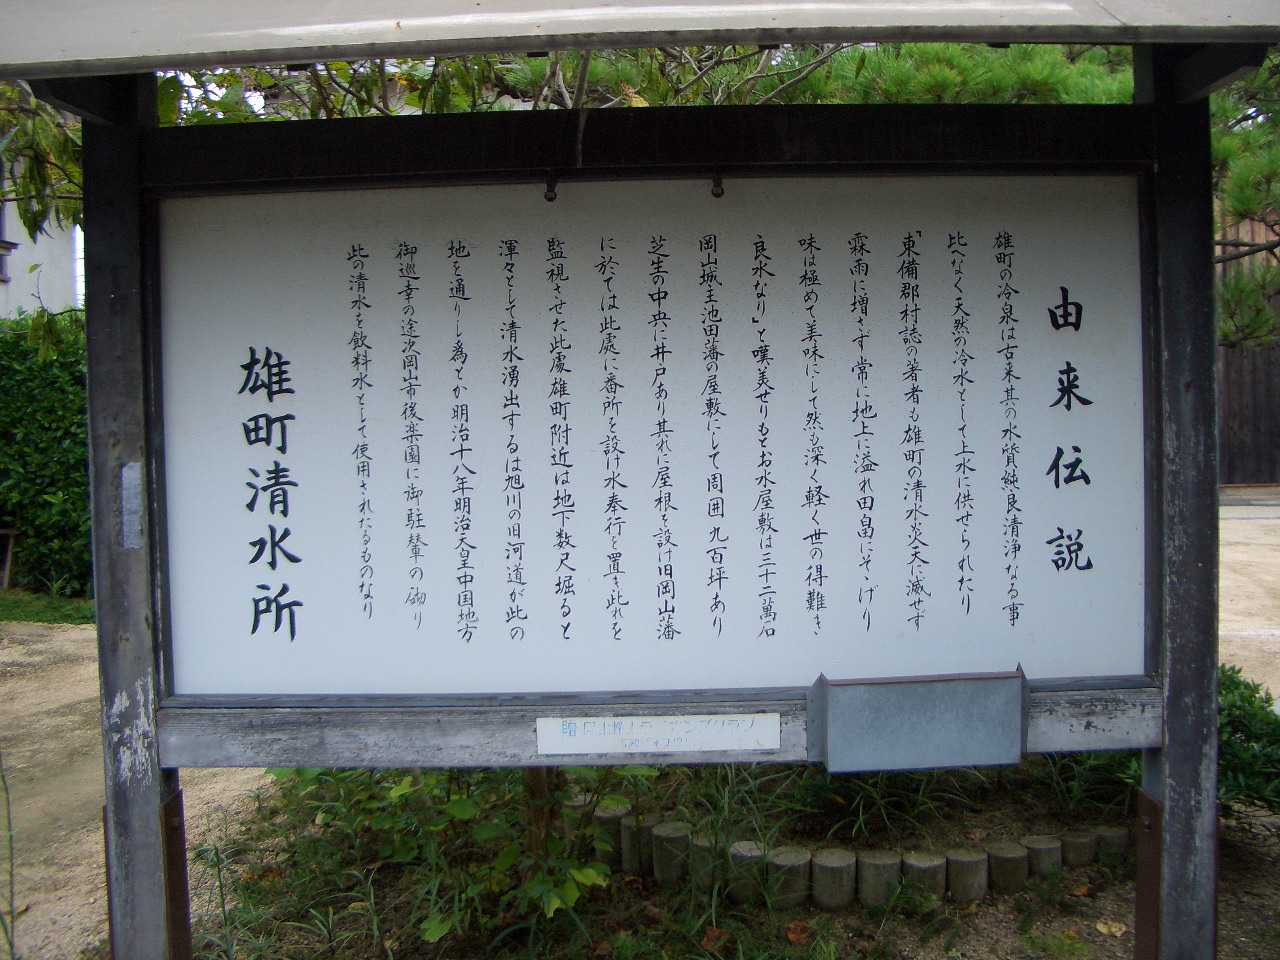 由来伝説
雄町の冷泉は古来其の水質純良清浄なる事
比べなく天然の冷水として上水に供せられたり
「東備郡村誌の著者も雄町の清水炎天に滅せず
霖雨に増さず常に地上に溢れ田畠にそゝげり
味は極めて美味にして然も深く軽く世の得難き
良水なり」と嘆美せりもとお水屋敷は三十二萬石
岡山城主池田藩の屋敷にして周囲九百坪あり
芝生の中央に井戸あり其れに屋根を設け旧岡山藩
に於ては此處に番所を設け水奉行を置き此れを
監視させた此處雄町附近は地下数尺堀ると
渾々として清水湧出するは旭川の旧河道が此の
地を通りし為とか明治十八年明治天皇中国地方
御巡幸の途次岡山市後楽園に御駐輦の砌り
此の清水を飲料水として使用されたるものなり
雄町清水所